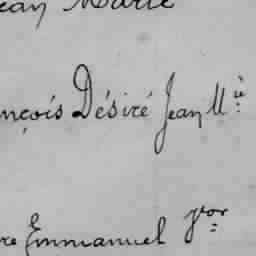 ean Marie
nçois Désiré Jean M ie
re Emmanuel